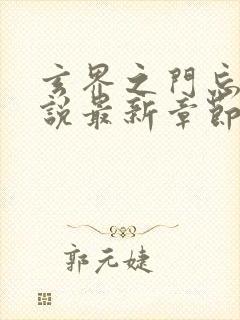 玄界之門忘
說最新章節
郭元婕